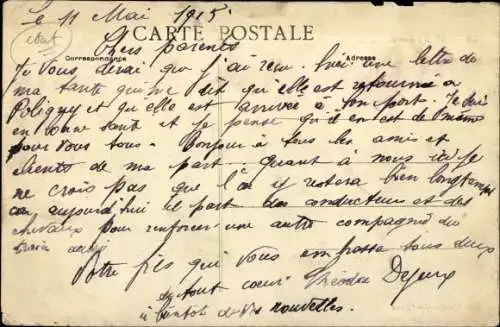 Le 11 Mai 1915
état
CARTE POSTALE
Chers parents
Correspondance
Adresse
Je vous dirai que j'ai reçu hier une lettre de
ma tante qui me dit qu'elle est retournée a
Poligny et qu'elle est arrivée à bon port. Je suis
en bonne santé et je pense qu'il en est de même
pour vous tous. Bonjour à tous les amis et
clients de ma part. Quant à nous ici je
ne crois pas que l'on y restera bien longtemps
car aujourd'hui il part des conducteurs et des
chevaux pour renforcer une autre compagnie du
train
Votre fils qui vous embrasse tous deux
de tout coeur Théodore Dejeux
à bientôt de vos nouvelles.